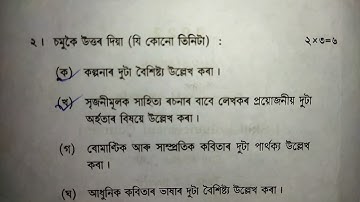 ২। চমুকৈ উত্তৰ দিয়া (যি কোনো তিনিটা) : ২×৩=৬
(ক) কল্পনাৰ দুটা বৈশিষ্ট্য উল্লেখ কৰা।
(খ) সৃজনীমূলক সাহিত্য ৰচনাৰ বাবে লেখকৰ প্ৰয়োজনীয় দুটা
অৰ্হতাৰ বিষয়ে উল্লেখ কৰা।
(গ) ৰোমাণ্টিক আৰু সাম্প্ৰতিক কবিতাৰ দুটা পাৰ্থক্য উল্লেখ
কৰা।
(ঘ) আধুনিক কবিতাৰ ভাষাৰ দুটা বৈশিষ্ট্য উল্লেখ কৰা।